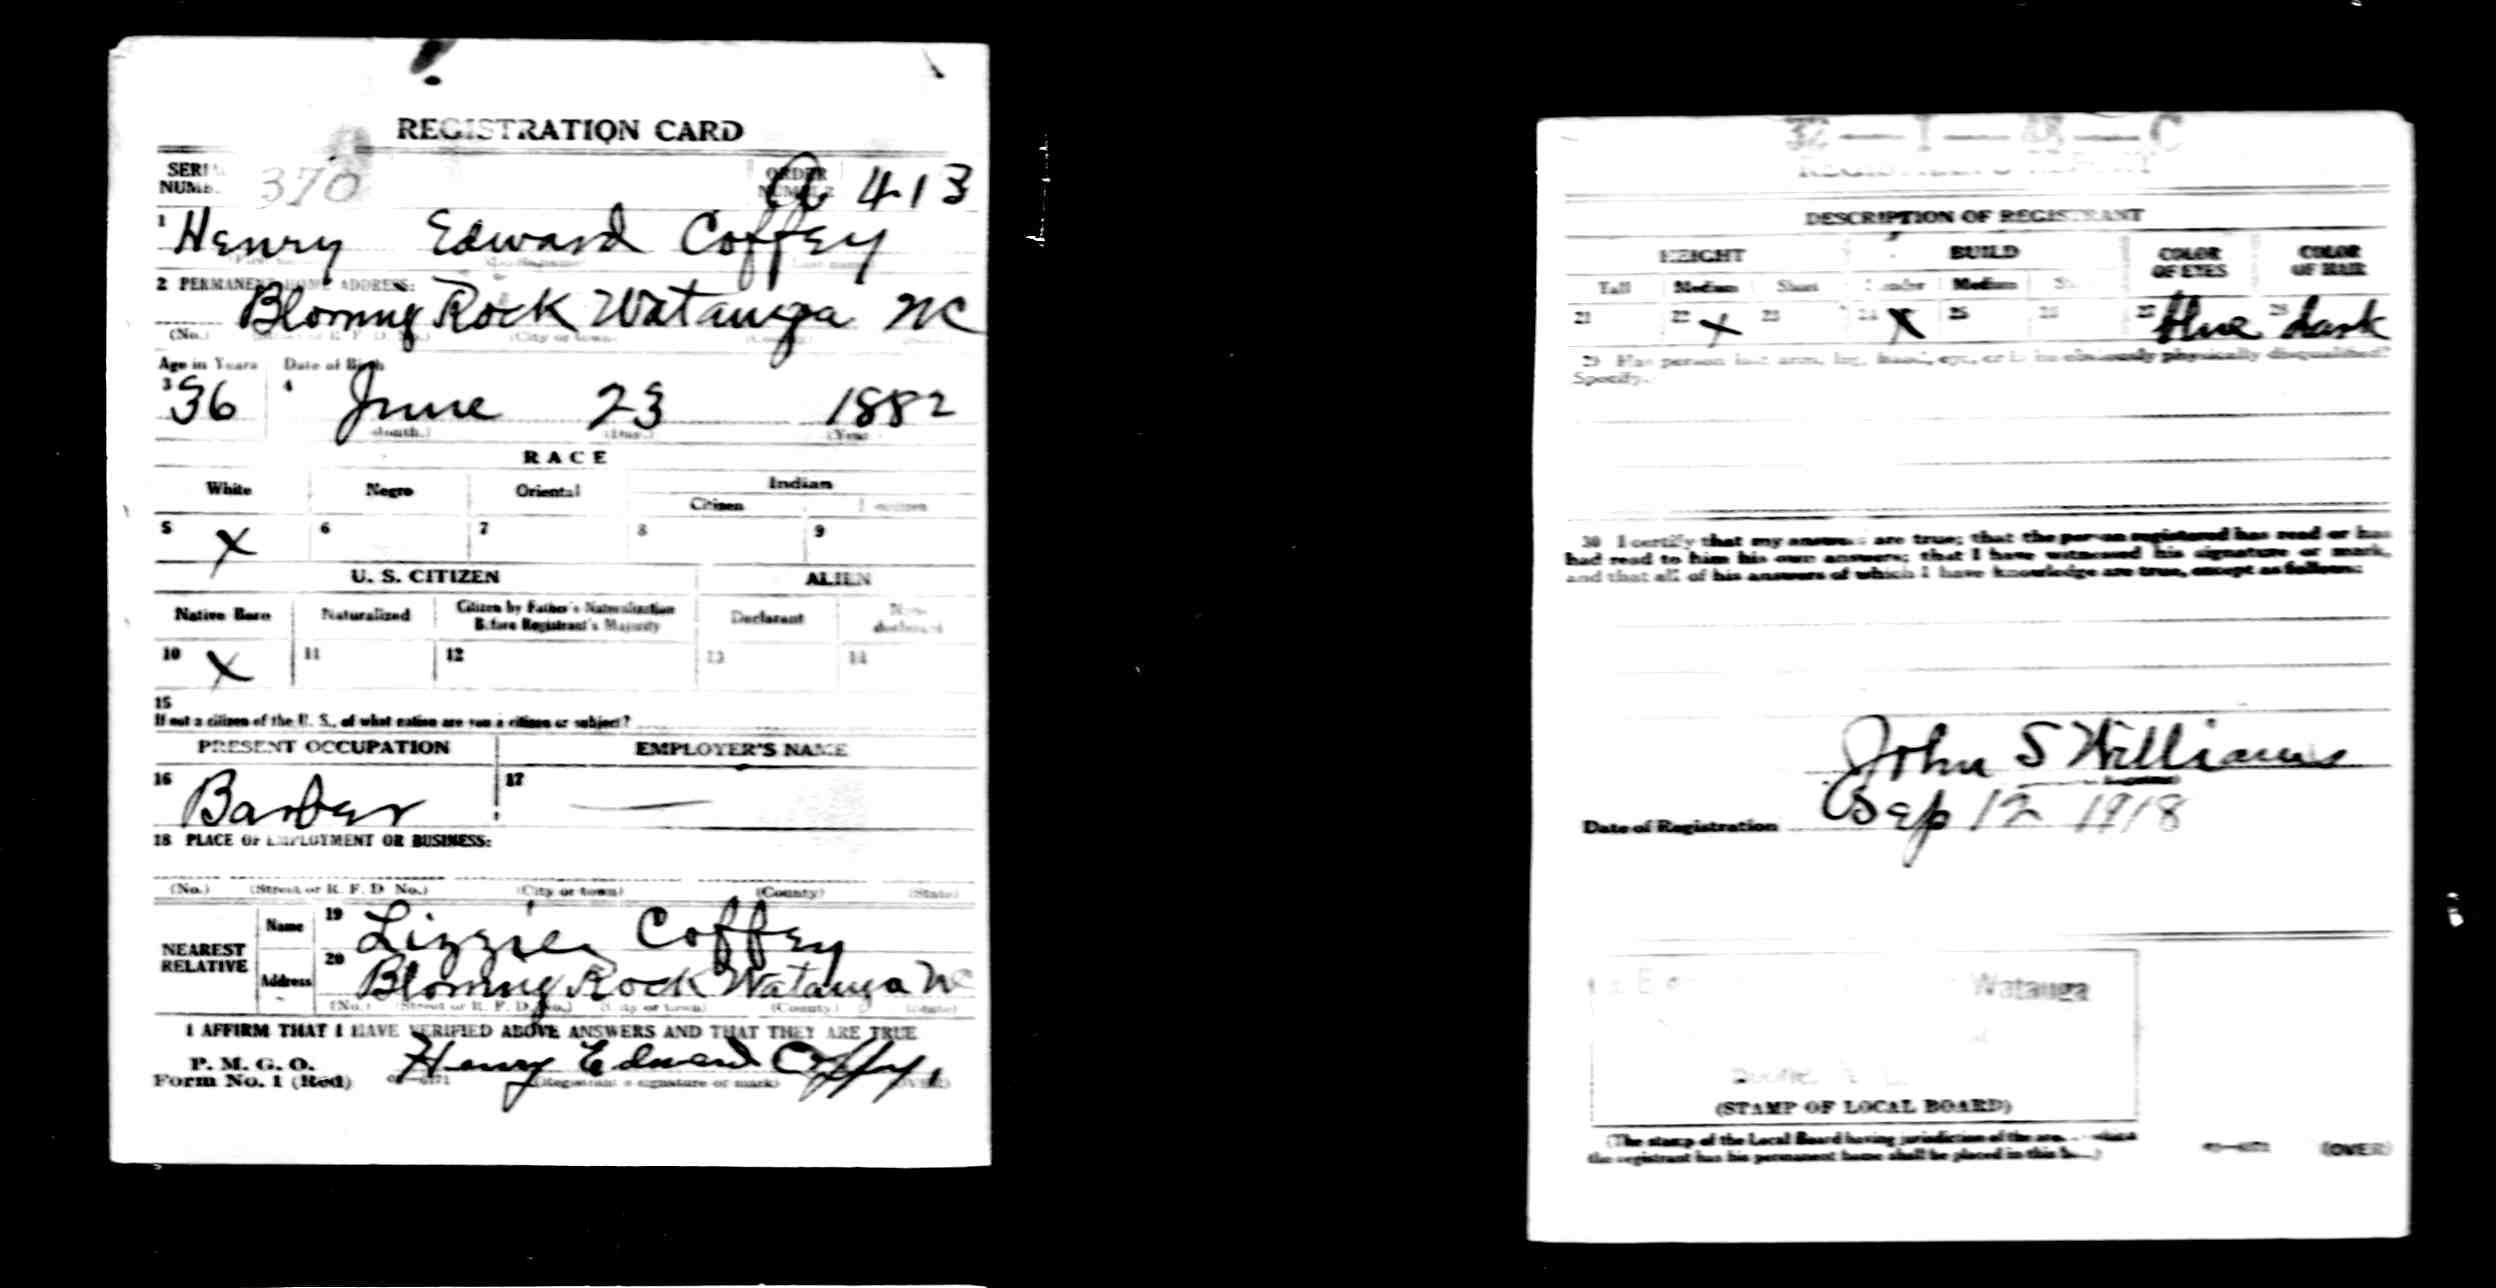 REGISTRATION CARD
SERI NUMB. 370 ORDER NUMBER A 413
1 Henry Edward Coffey
2 PERMANENT HOME ADDRESS:
Blowing Rock Watauga NC
(No.) (City or town)
Age in Years Date of Birth
3 36 4 June 23 1882
(Month.) (Day.) (Year
RACE
White Negro Oriental Indian
Citizen
5 X 6 7 8 9
U. S. CITIZEN ALIEN
Native Born Naturalized Citizen by Father's Naturalization Before Registrant's Majority Declarant Non-declarant
10 X 11 12 13 14
15
If not a citizen of the U. S., of what nation are you a citizen or subject?
PRESENT OCCUPATION EMPLOYER'S NAME
16 Barber 17 —
18 PLACE OF EMPLOYMENT OR BUSINESS:
(No.) (Street or R. F. D. No.) (City or town) (County) (State)
NEAREST RELATIVE
Name 19 Lizzie Coffey
Address 20 Blowing Rock Watauga NC
(No.) (Street or R. F. D. No.) (City or town) (County) (State)
I AFFIRM THAT I HAVE VERIFIED ABOVE ANSWERS AND THAT THEY ARE TRUE
P. M. G. O.
Form No. 1 (Red) Henry Edward Coffey
(Registrant's signature or mark) (OVER)
32—1—48—C
DESCRIPTION OF REGISTRANT
HEIGHT BUILD COLOR OF EYES COLOR OF HAIR
Tall Medium Short Slender Medium
21 22 X 23 24 X 25 26 27 blue 28 dark
29 Has person lost arm, leg, hand, eye, or is he obviously physically disqualified?
Specify.
30 I certify that my answers are true; that the person registered has read or has
had read to him his own answers; that I have witnessed his signature or mark,
and that all of his answers of which I have knowledge are true, except as follows:
John S Williams
Date of Registration Sep 12 1918
Watauga
(STAMP OF LOCAL BOARD)
(The stamp of the Local Board having jurisdiction of the area
the registrant has his permanent home shall be placed in this
(OVER)